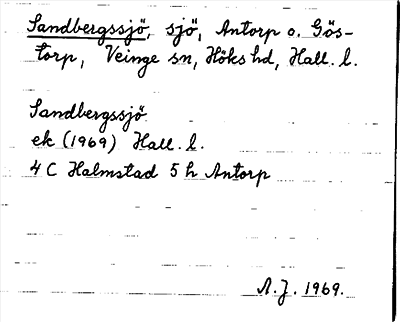 Sandbergssjö, sjö, Antorp o. Gös-
torp, Veinge sn, Höks hd, Hall. l.
Sandbergssjö
ek (1969) Hall. l.
4 C Halmstad 5 h Antorp
A.J. 1969.